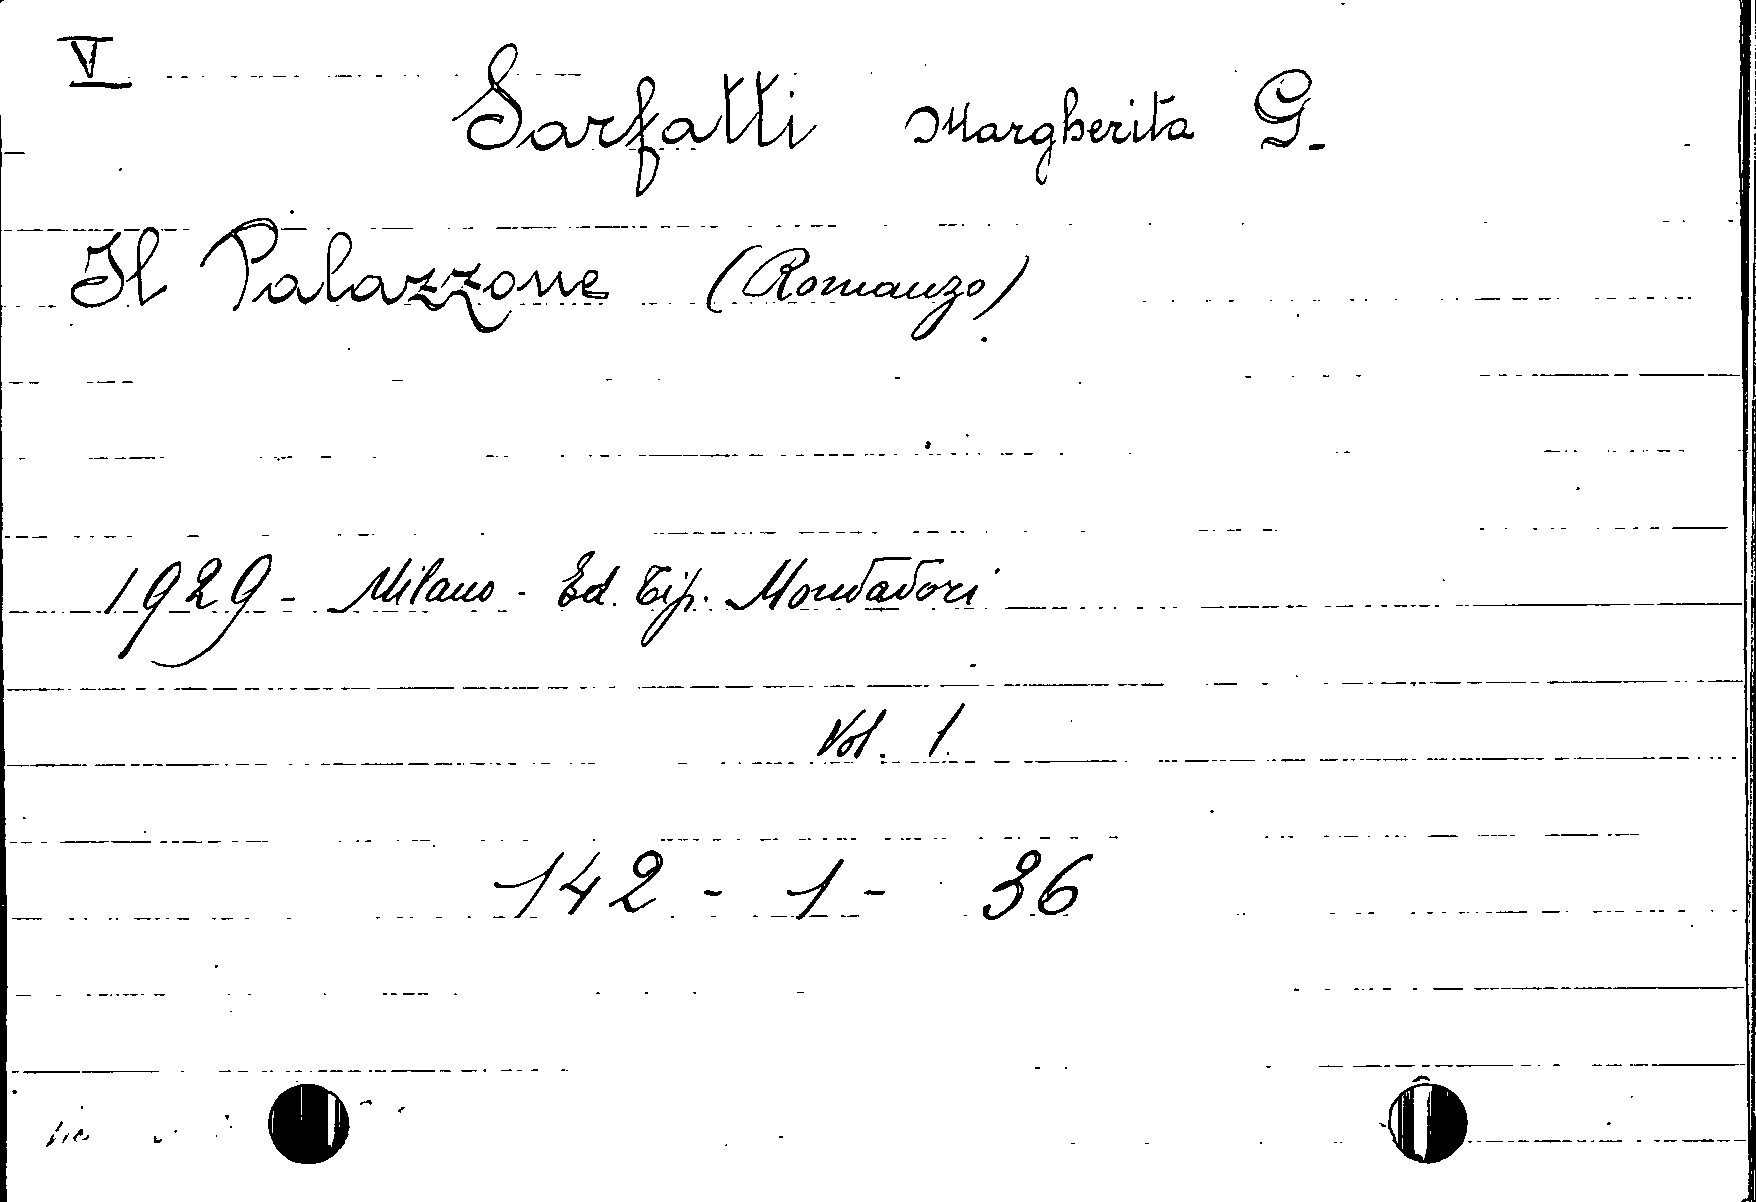 V
Sarfatti Margherita G.
Il Palazzone (Romanzo).
1929 - Milano - Ed. Tip. Mondadori
Vol. 1
142 - 1 - 36